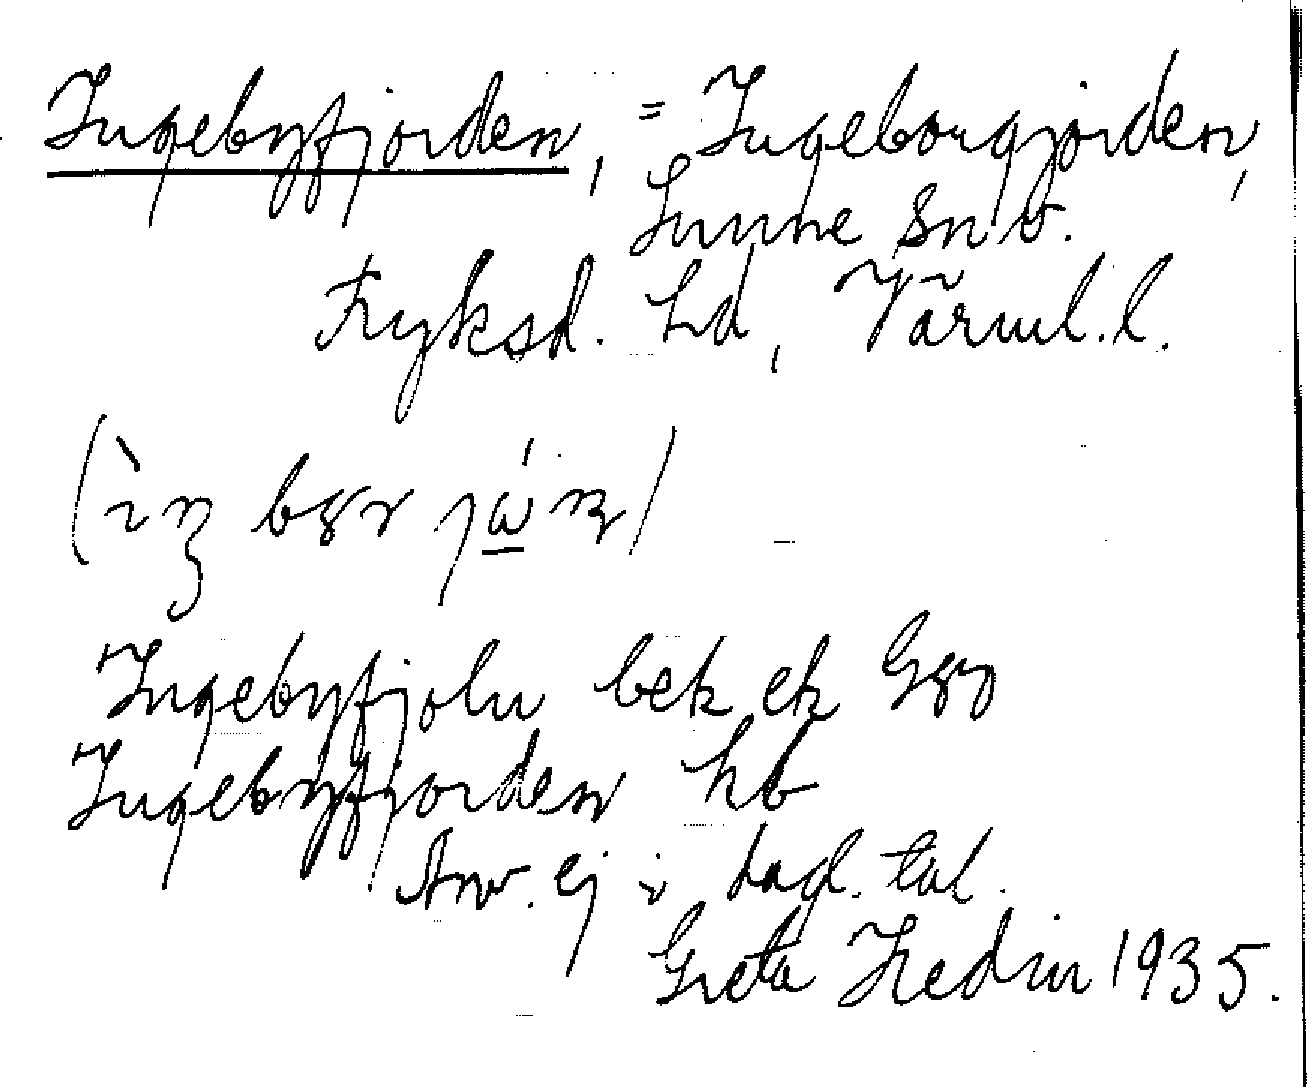 Ingebyfjorden, = Ingeborgjorden,
Sunne sn v.
Fryksd. hd, Värml. l.
Ingebyfjoln bek ek
Ingebyfjorden hb
Anv. ej i dagl. tal.
Greta Hedin 1935.